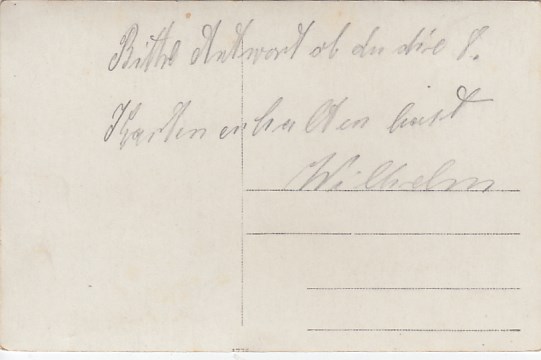 Bitte Antwort ob du die 8.
Karten erhalten hast
Wilhelm